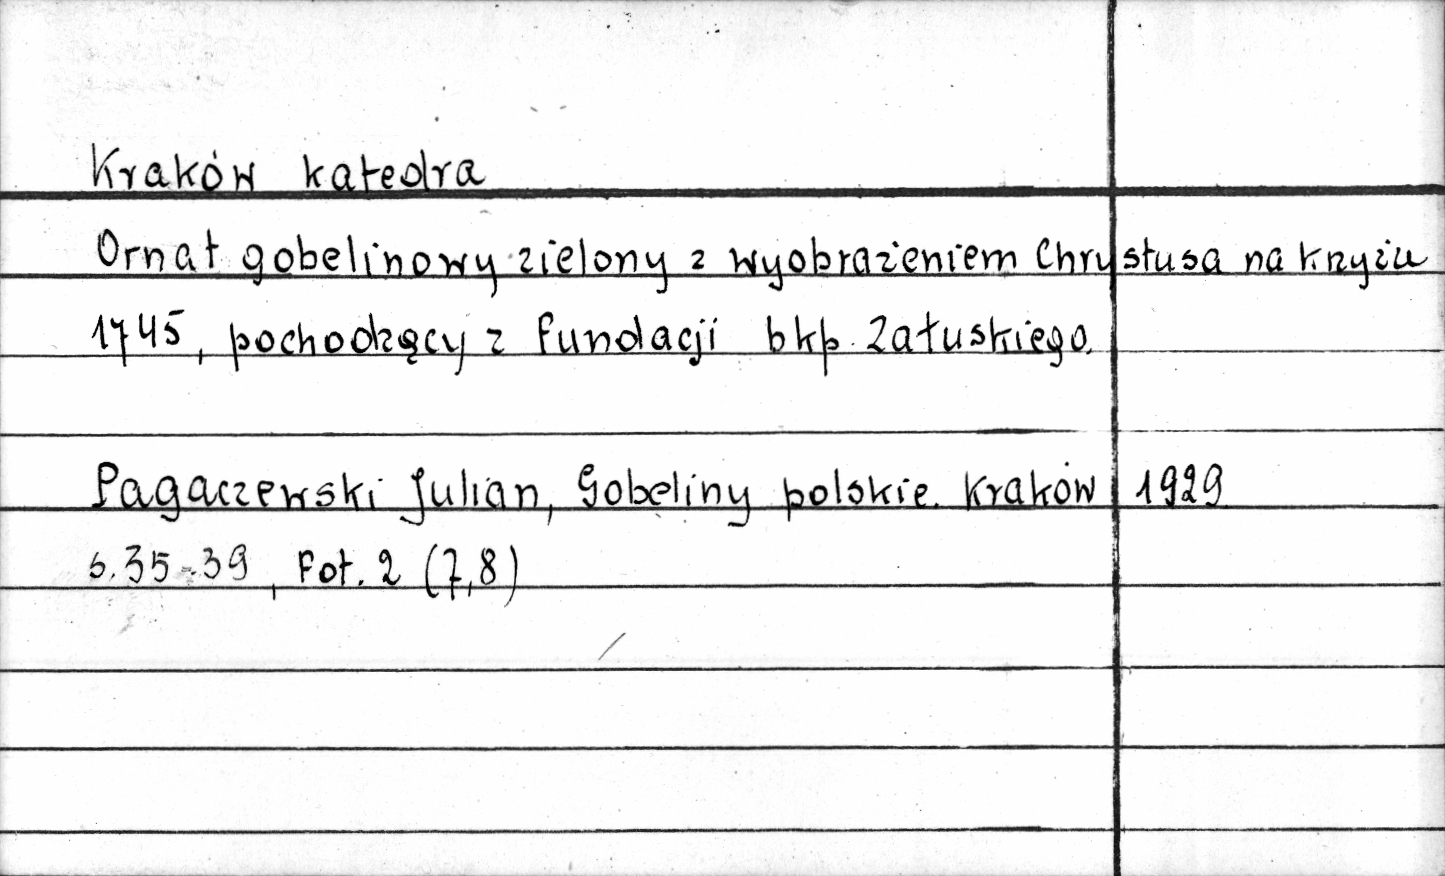 Kraków katedra
Ornat gobelinowy zielony z wyobrażeniem Chrystusa na krzyżu
1745, pochodzący z fundacji bkp. Załuskiego.
Pagaczewski Julian, Gobeliny polskie. Kraków 1929
s. 35-39, Fot. 2 (7,8)